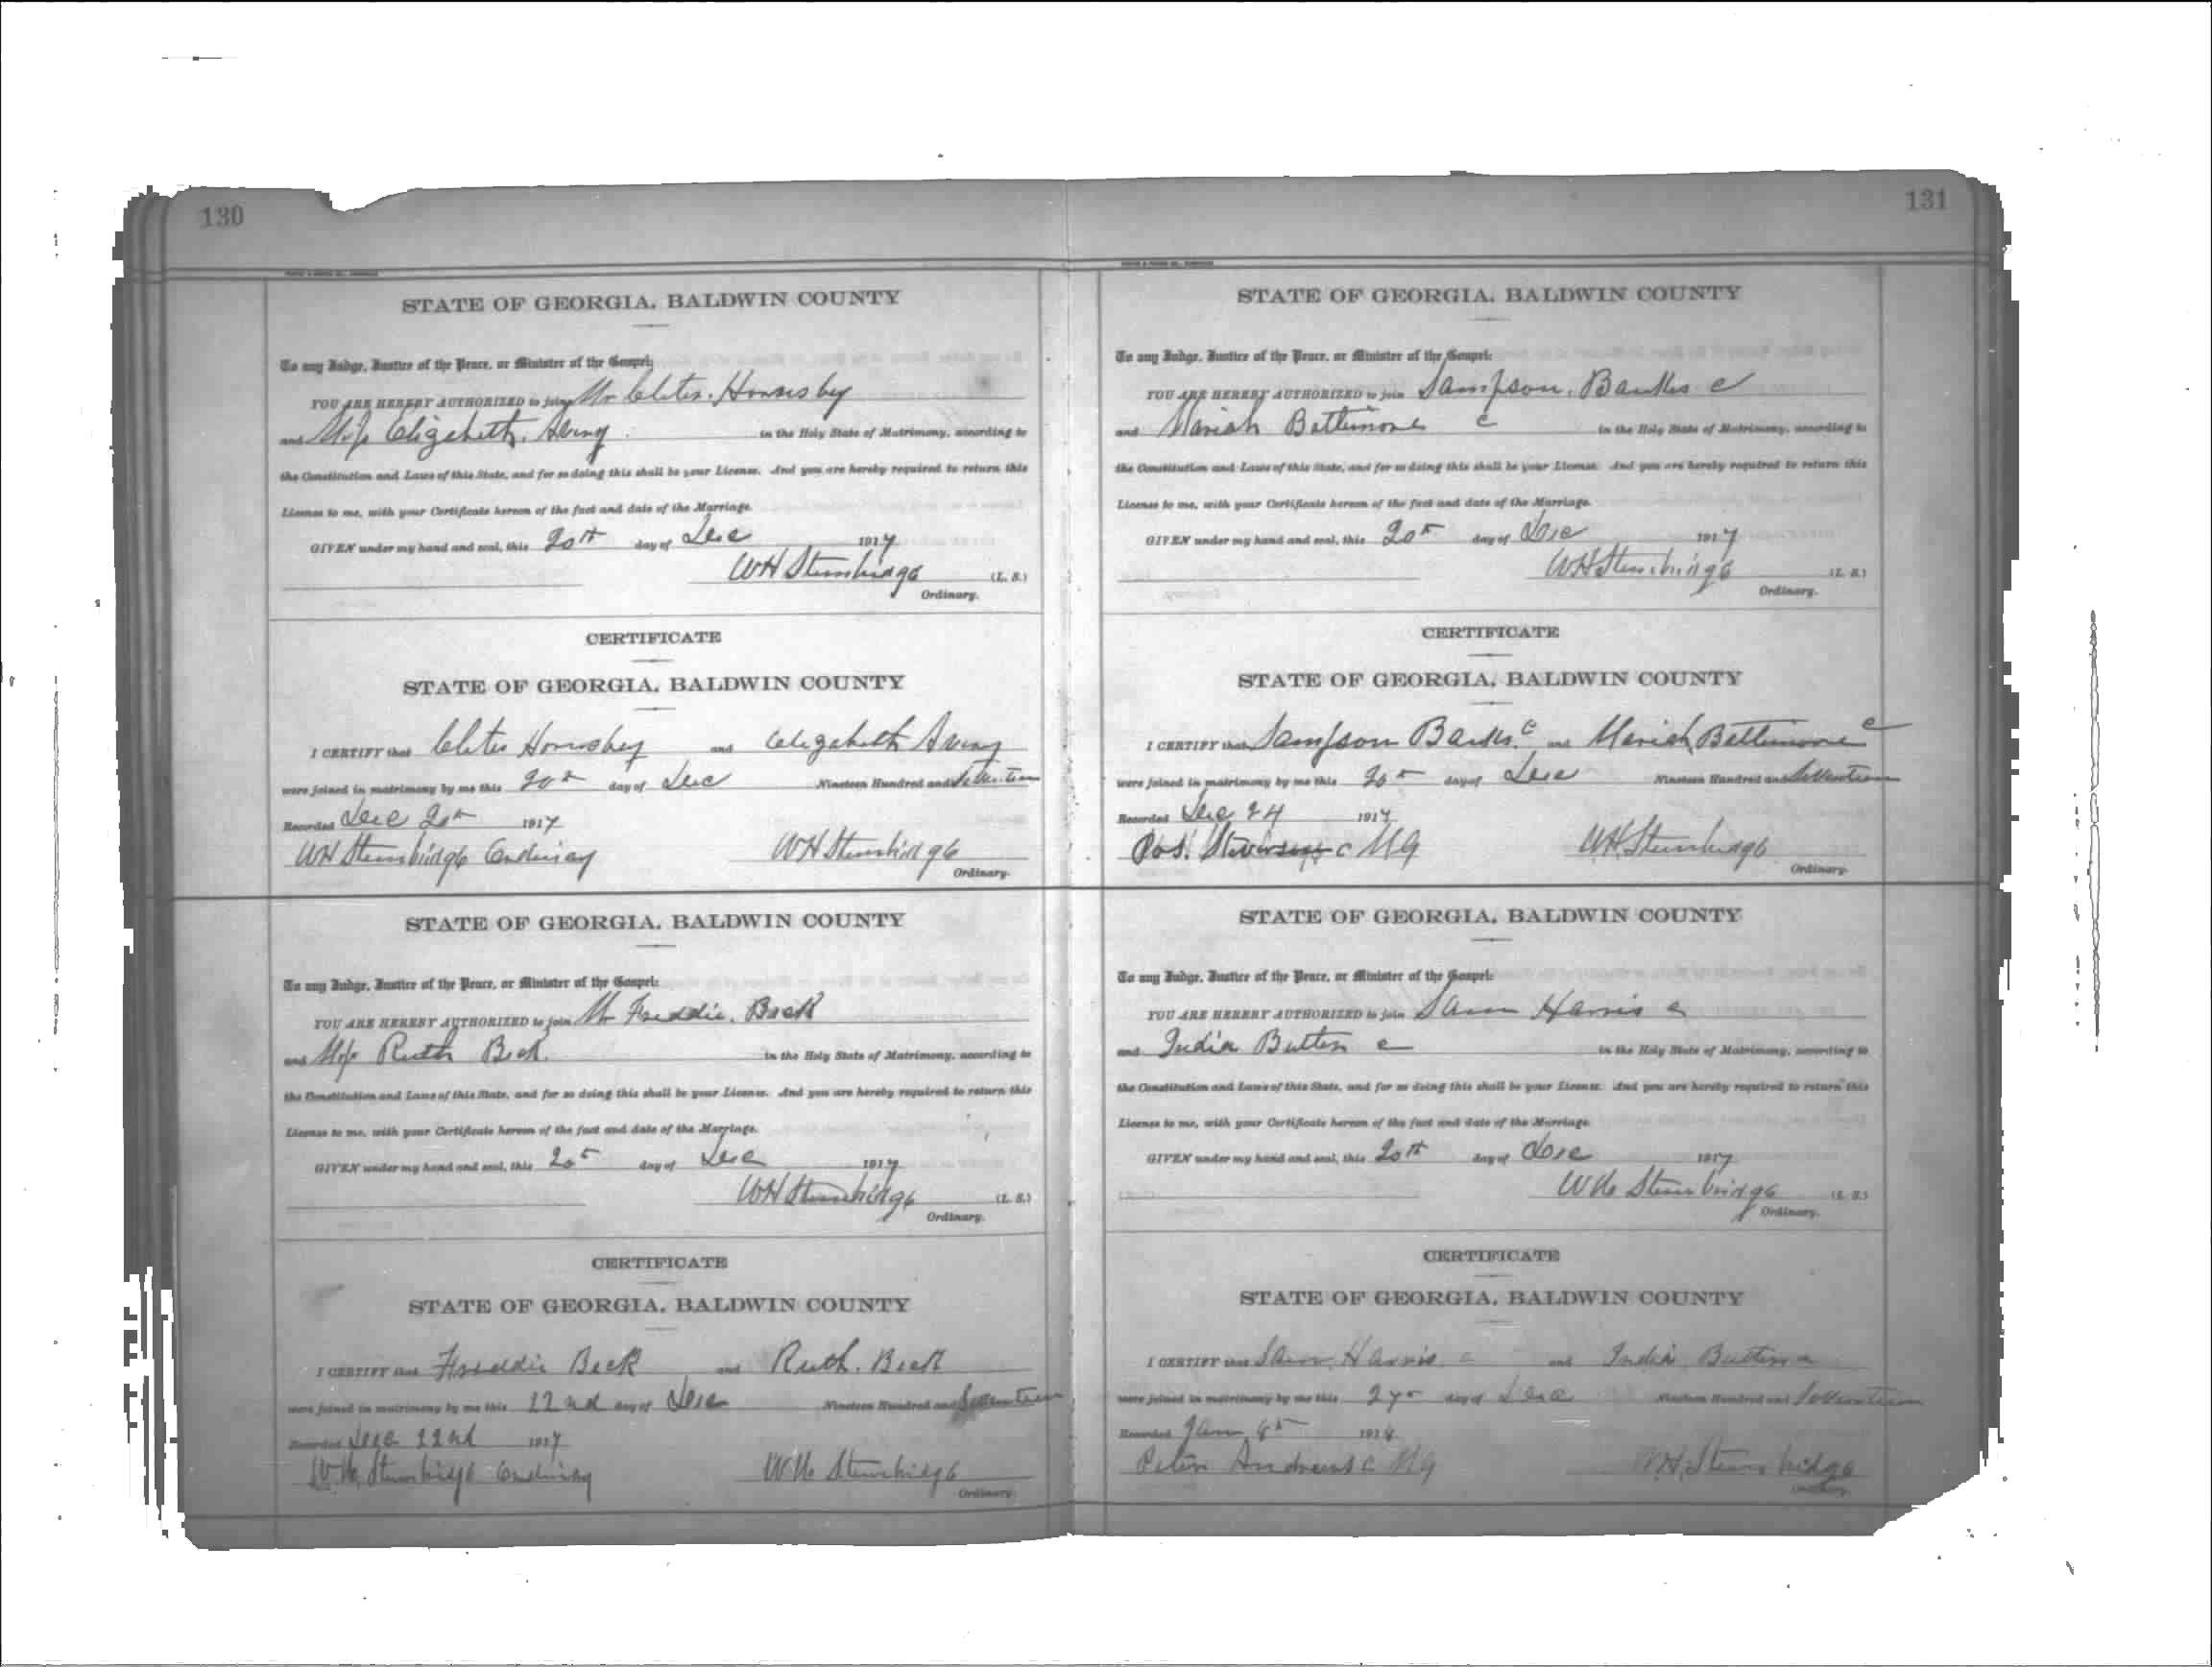 130
STATE OF GEORGIA, BALDWIN COUNTY
To any Judge, Justice of the Peace, or Minister of the Gospel:
YOU ARE HEREBY AUTHORIZED to join Mr Cletes. Hornsby
and Miss Elizabeth. in the Holy State of Matrimony, according to
the Constitution and Laws of this State, and for so doing this shall be your License. And you are hereby required to return this
License to me, with your Certificate hereon of the fact and date of the Marriage.
GIVEN under my hand and seal, this 20th day of Dec 1917
WH Stembridge (L. S.)
Ordinary.
CERTIFICATE
STATE OF GEORGIA, BALDWIN COUNTY
I CERTIFY that Hornsby and Elizabeth
were joined in matrimony by me this 20th day of Dec Nineteen Hundred and Seventeen
Recorded Dec 20th 1917
WH Stembridge Ordinary WH Stembridge
Ordinary.
STATE OF GEORGIA, BALDWIN COUNTY
To any Judge, Justice of the Peace, or Minister of the Gospel:
YOU ARE HEREBY AUTHORIZED to join Mr Freddie. Beck
and Miss Ruth Beck. in the Holy State of Matrimony, according to
the Constitution and Laws of this State, and for so doing this shall be your License. And you are hereby required to return this
License to me, with your Certificate hereon of the fact and date of the Marriage.
GIVEN under my hand and seal, this 20th day of Dec 1917
WH Stembridge (L. S.)
Ordinary.
CERTIFICATE
STATE OF GEORGIA, BALDWIN COUNTY
I CERTIFY that Freddie Beck and Ruth. Beck
were joined in matrimony by me this 22nd day of Dec Nineteen Hundred and Seventeen
Recorded Dec 22nd 1917
W.H. Stembridge Ordinary WH Stembridge
Ordinary.
131
STATE OF GEORGIA, BALDWIN COUNTY
To any Judge, Justice of the Peace, or Minister of the Gospel:
YOU ARE HEREBY AUTHORIZED to join Sampson. Banks c
and Mariah Battimore c in the Holy State of Matrimony, according to
the Constitution and Laws of this State, and for so doing this shall be your License. And you are hereby required to return this
License to me, with your Certificate hereon of the fact and date of the Marriage.
GIVEN under my hand and seal, this 20th day of Dec 1917
WH Stembridge (L. S.)
Ordinary.
CERTIFICATE
STATE OF GEORGIA, BALDWIN COUNTY
I CERTIFY that Sampson Banks c and Mariah Battimore c
were joined in matrimony by me this 20th day of Dec Nineteen Hundred and Seventeen
Recorded Dec 24 1917
c MG WH Stembridge
Ordinary.
STATE OF GEORGIA, BALDWIN COUNTY
To any Judge, Justice of the Peace, or Minister of the Gospel:
YOU ARE HEREBY AUTHORIZED to join Sam Harris c
and India Butten c in the Holy State of Matrimony, according to
the Constitution and Laws of this State, and for so doing this shall be your License. And you are hereby required to return this
License to me, with your Certificate hereon of the fact and date of the Marriage.
GIVEN under my hand and seal, this 20th day of Dec 1917
WH Stembridge (L. S.)
Ordinary.
CERTIFICATE
STATE OF GEORGIA, BALDWIN COUNTY
I CERTIFY that Sam Harris c and India Butten c
were joined in matrimony by me this 27th day of Dec Nineteen Hundred and Seventeen
Recorded Jan 1918
Peter Andrews c MG WH Stembridge
Ordinary.